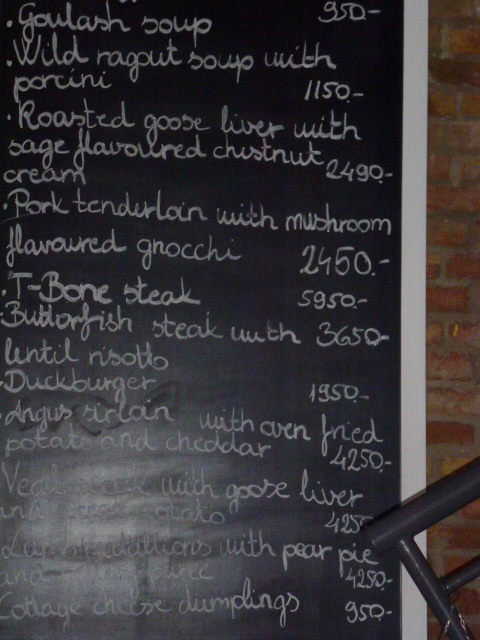 · Goulash soup 950.-
· Wild ragout soup with
porcini 1150.-
· Roasted goose liver with
sage flavoured chestnut
cream 2490.-
· Pork tenderloin with mushroom
flavoured gnocchi 2450.-
· T-Bone steak 5950.-
· Butterfish steak with 3650.-
lentil risotto
· Duckburger 1950.-
· Angus sirloin with oven fried
potato and cheddar 4250.-
Veal steak with goose liver
and potato 4250
with pear pie
and 4250.-
Cottage cheese dumplings 950.-